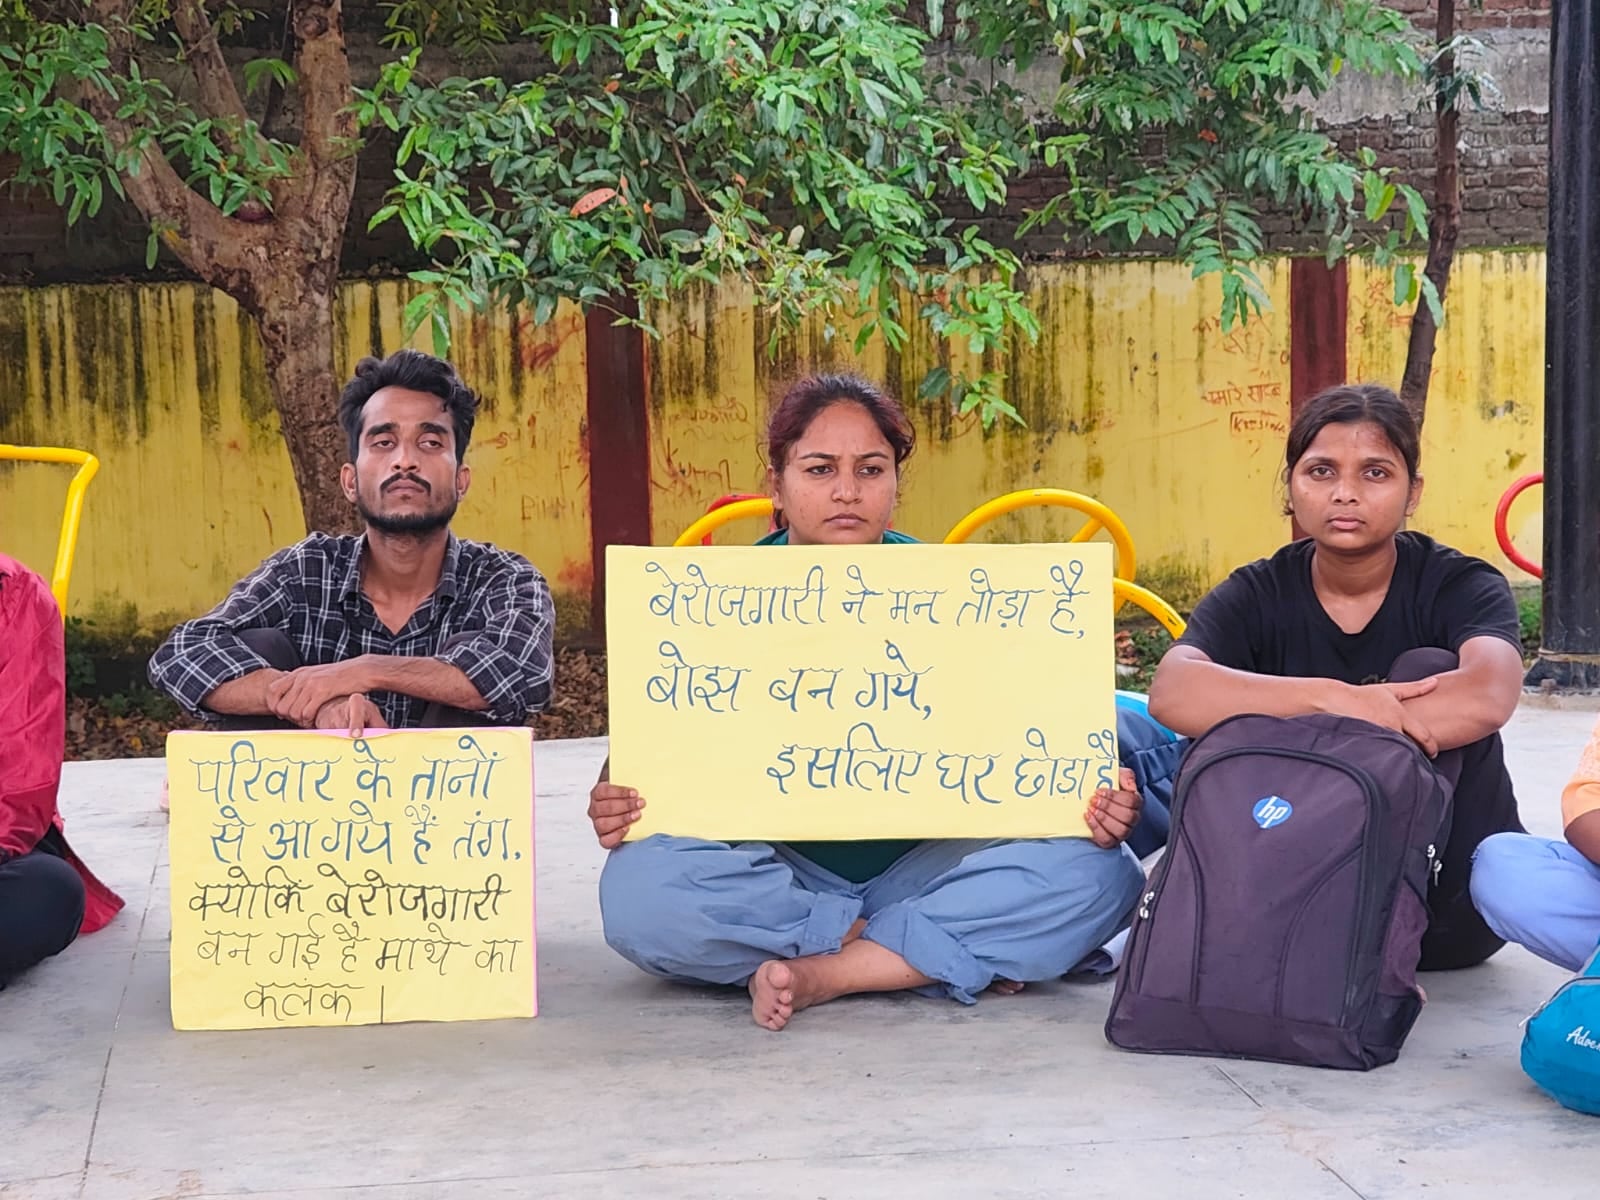 परिवार के तानों
से आ गये हैं तंग,
क्योकिं बेरोजगारी
बन गई है माथे का
कलंक |
बेरोजगारी ने मन तोड़ा है,
बोझ बन गये,
इसलिए घर छोड़ा है
hp